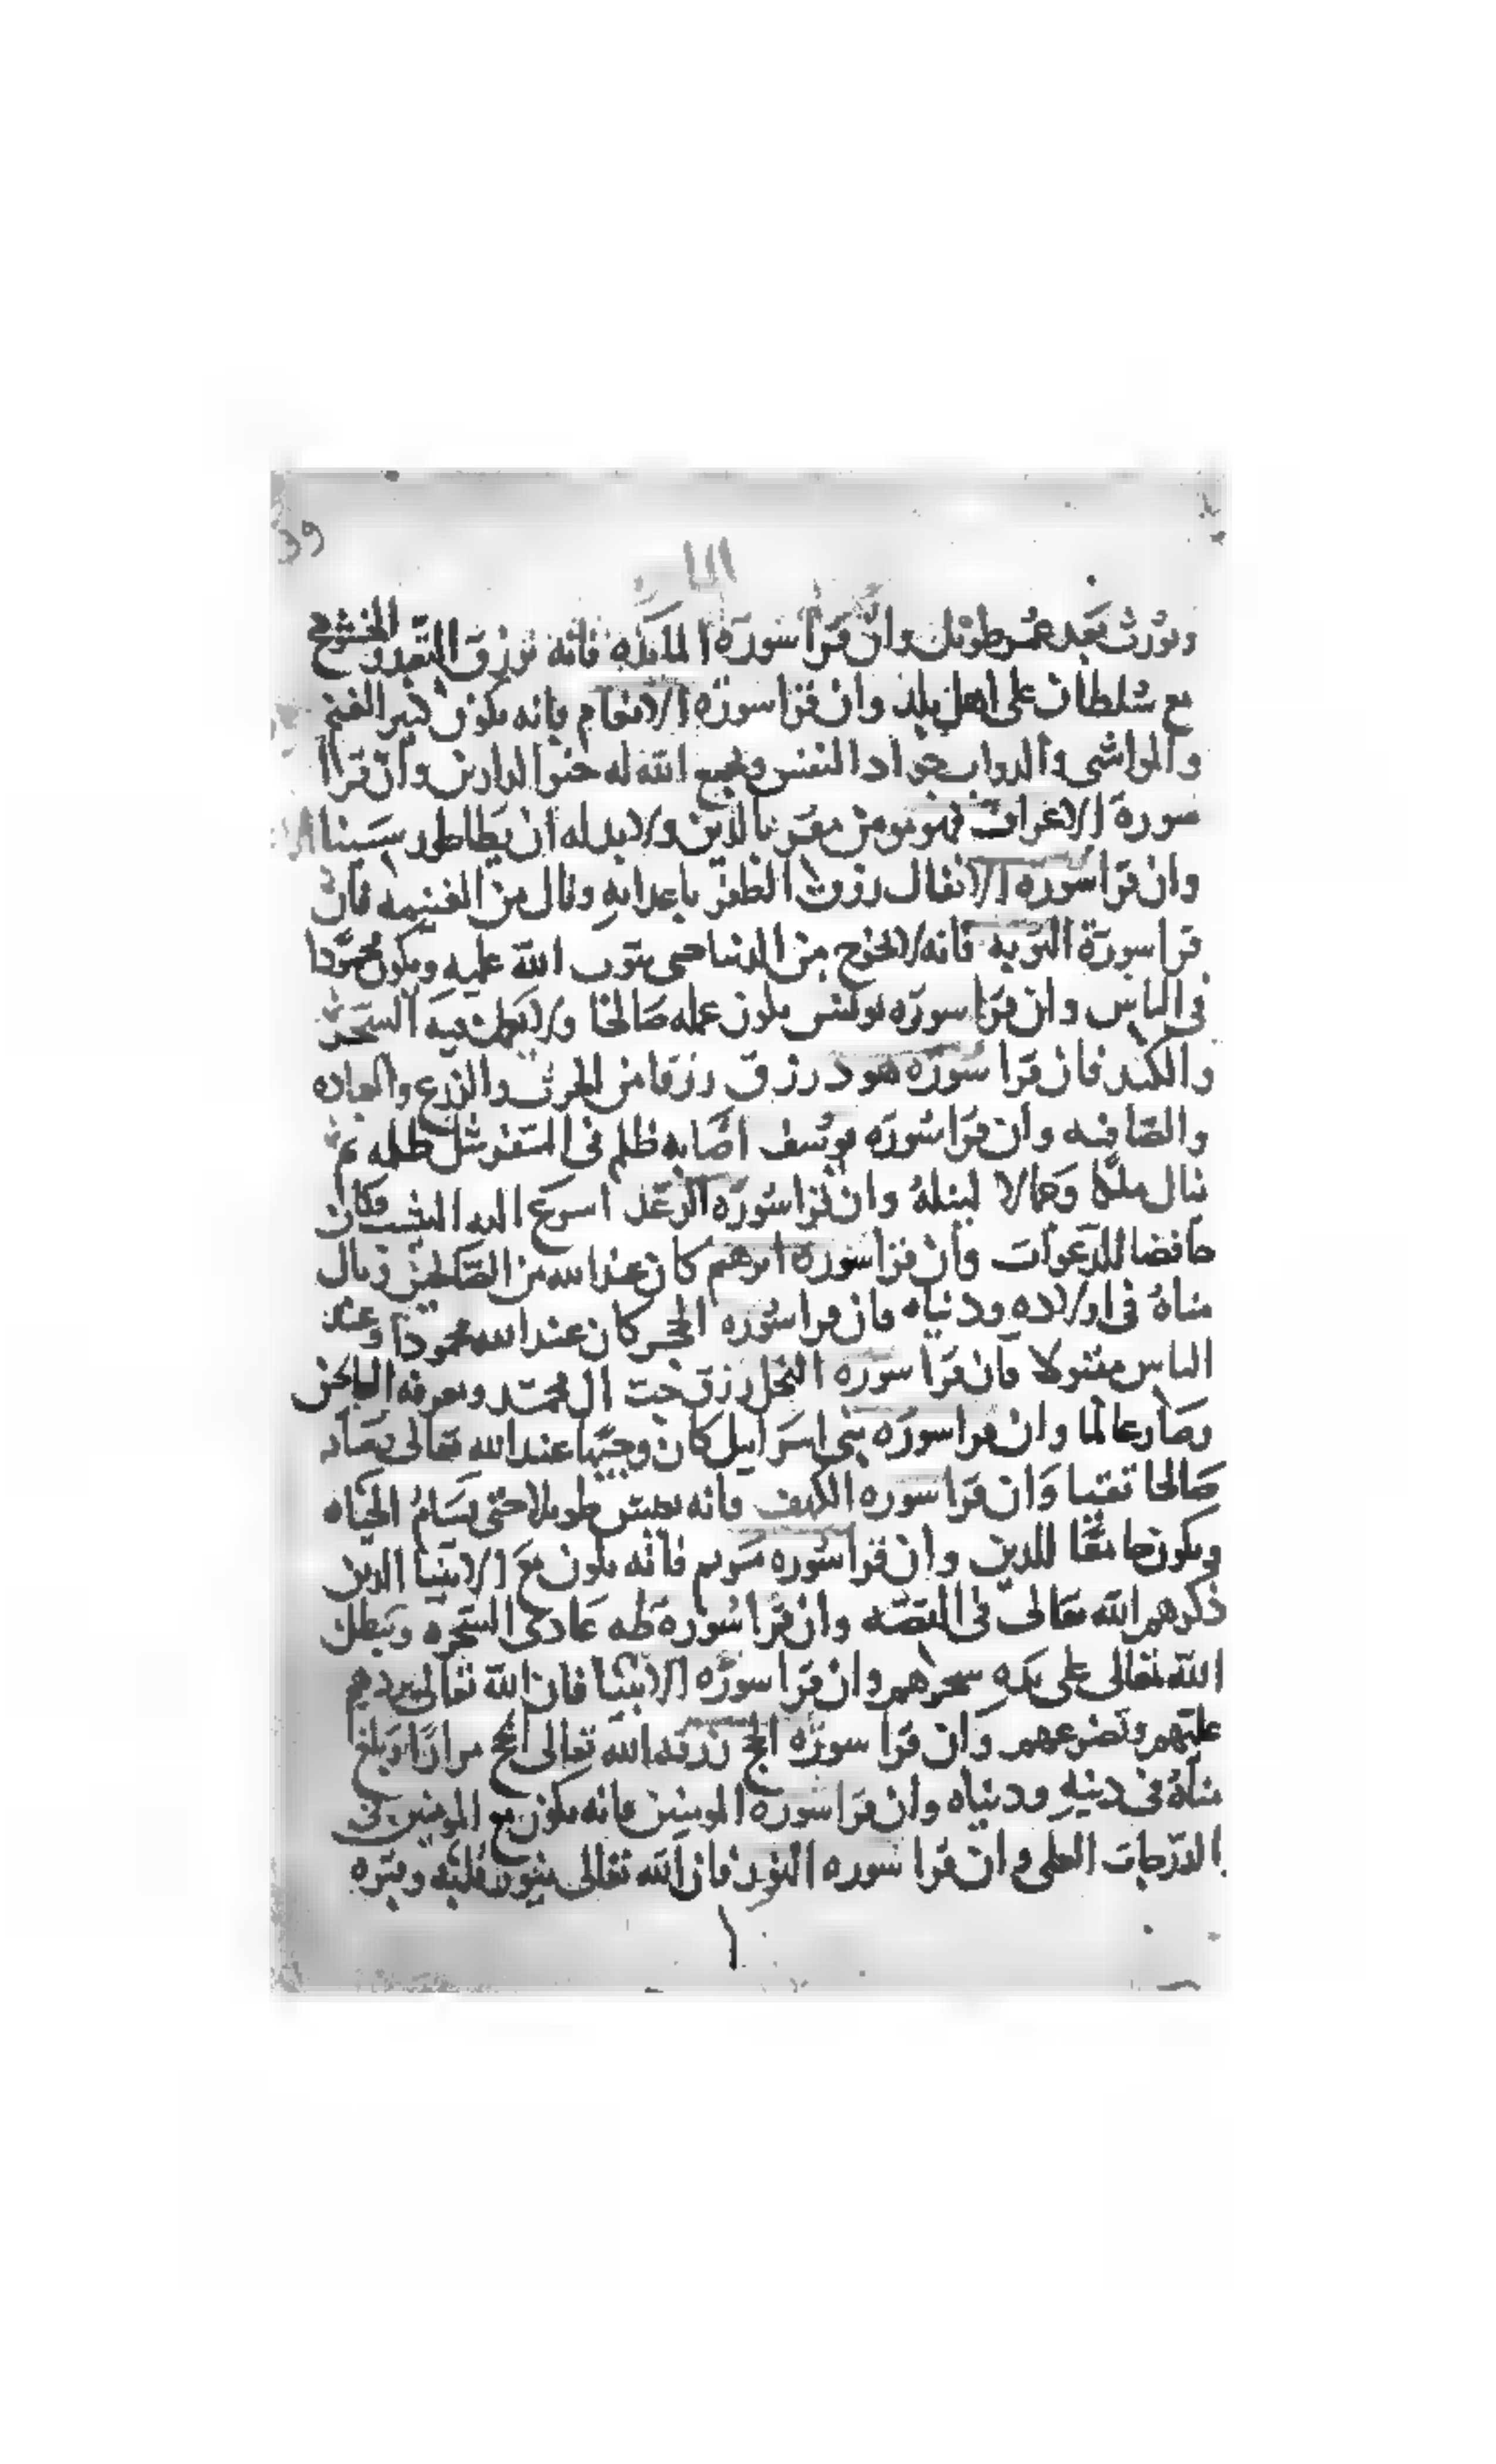 ويورث بعد عمر طويل وان قرا سورة المايده فانه يرزق التعبد والخشوع
مع سلطان على اهل بلد وان قرا سورة الانعام فانه يكون كثير الغنم
والمواشي والدواب جواد النفس ويجمع الله له خير الدارين وان قرا
سورة الاعراف فهو مومن مقر بالدين ولا بد له ان يطا طور سينا
وان قرا سورة الانفال رزق الظفر باعدايه ونال من الغنيمه فان
قرا سورة التوبه فانه لا يخرج من الدنيا حتى يتوب الله عليه ويكون محمودا
في الناس وان قرا سورة يونس يكون عمله صالحا ولا يعمل فيه السحر
والكيد فان قرا سورة هود رزق رزقا من الحرث والزرع والعباده
والصافيه وان قرا سورة يوسف اصابه ظلم في السفر مثل ظلمه ثم
ينال ملكا ومالا لمثله وان قرا سورة الرعد اسرع اليه الشيب فكان
حافضا للدعوات وان قرا سورة ابرهيم كان عند الله من الصالحين وينال
مناه في اولاده ودنياه فان قرا سورة الحجر كان عند الله محمودا وعند
الناس مقبولا فان قرا سورة النحل رزق حب ال محمد ومعرفه الباطن
وصار عالما وان قرا سورة بني اسرايل كان وجيها عند الله تعالى يصاد
صالحا تقيا وان قرا سورة الكهف فانه يعيش طويلا حتى يسام الحياه
ويكون عاشقا للدين وان قرا سورة مريم فانه يكون مع الانبيا الذين
ذكرهم الله تعالى في القصه وان قرا سورة طه عادى السحره ويبطل
الله تعالى على يده سحرهم وان قرا سورة الانبيا فان الله تعالى يردهم
عليهم وتضرعهم وان قرا سورة الحج رزقه الله تعالى الحج مرارا ويبلغ
مناه في دينه ودنياه وان قرا سورة المومنين فانه يكون مع المومنين في
الدرجات العلى وان قرا سورة النور فان الله تعالى ينور قلبه وقبره